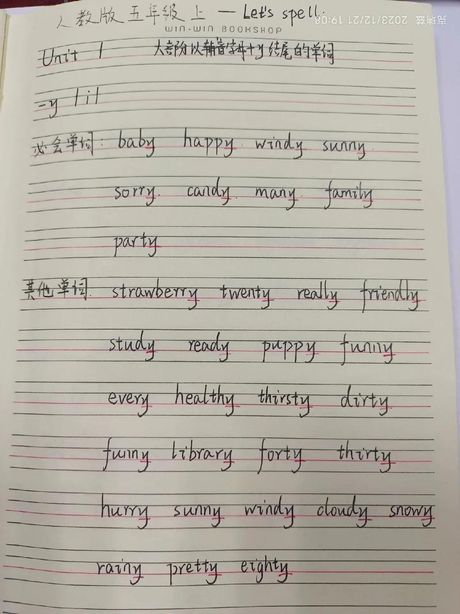 人教版五年级上 — Let's spell.
2023/12/21 19:08
WIN-WIN BOOKSHOP
Unit 1 大部分以辅音字母+y 结尾的单词
-y /i/
必会单词: baby happy windy sunny
sorry candy many family
party
其他单词 strawberry twenty really friendly
study ready puppy funny
every healthy thirsty dirty
funny library forty thirty
hurry sunny windy cloudy snowy
rainy pretty eighty